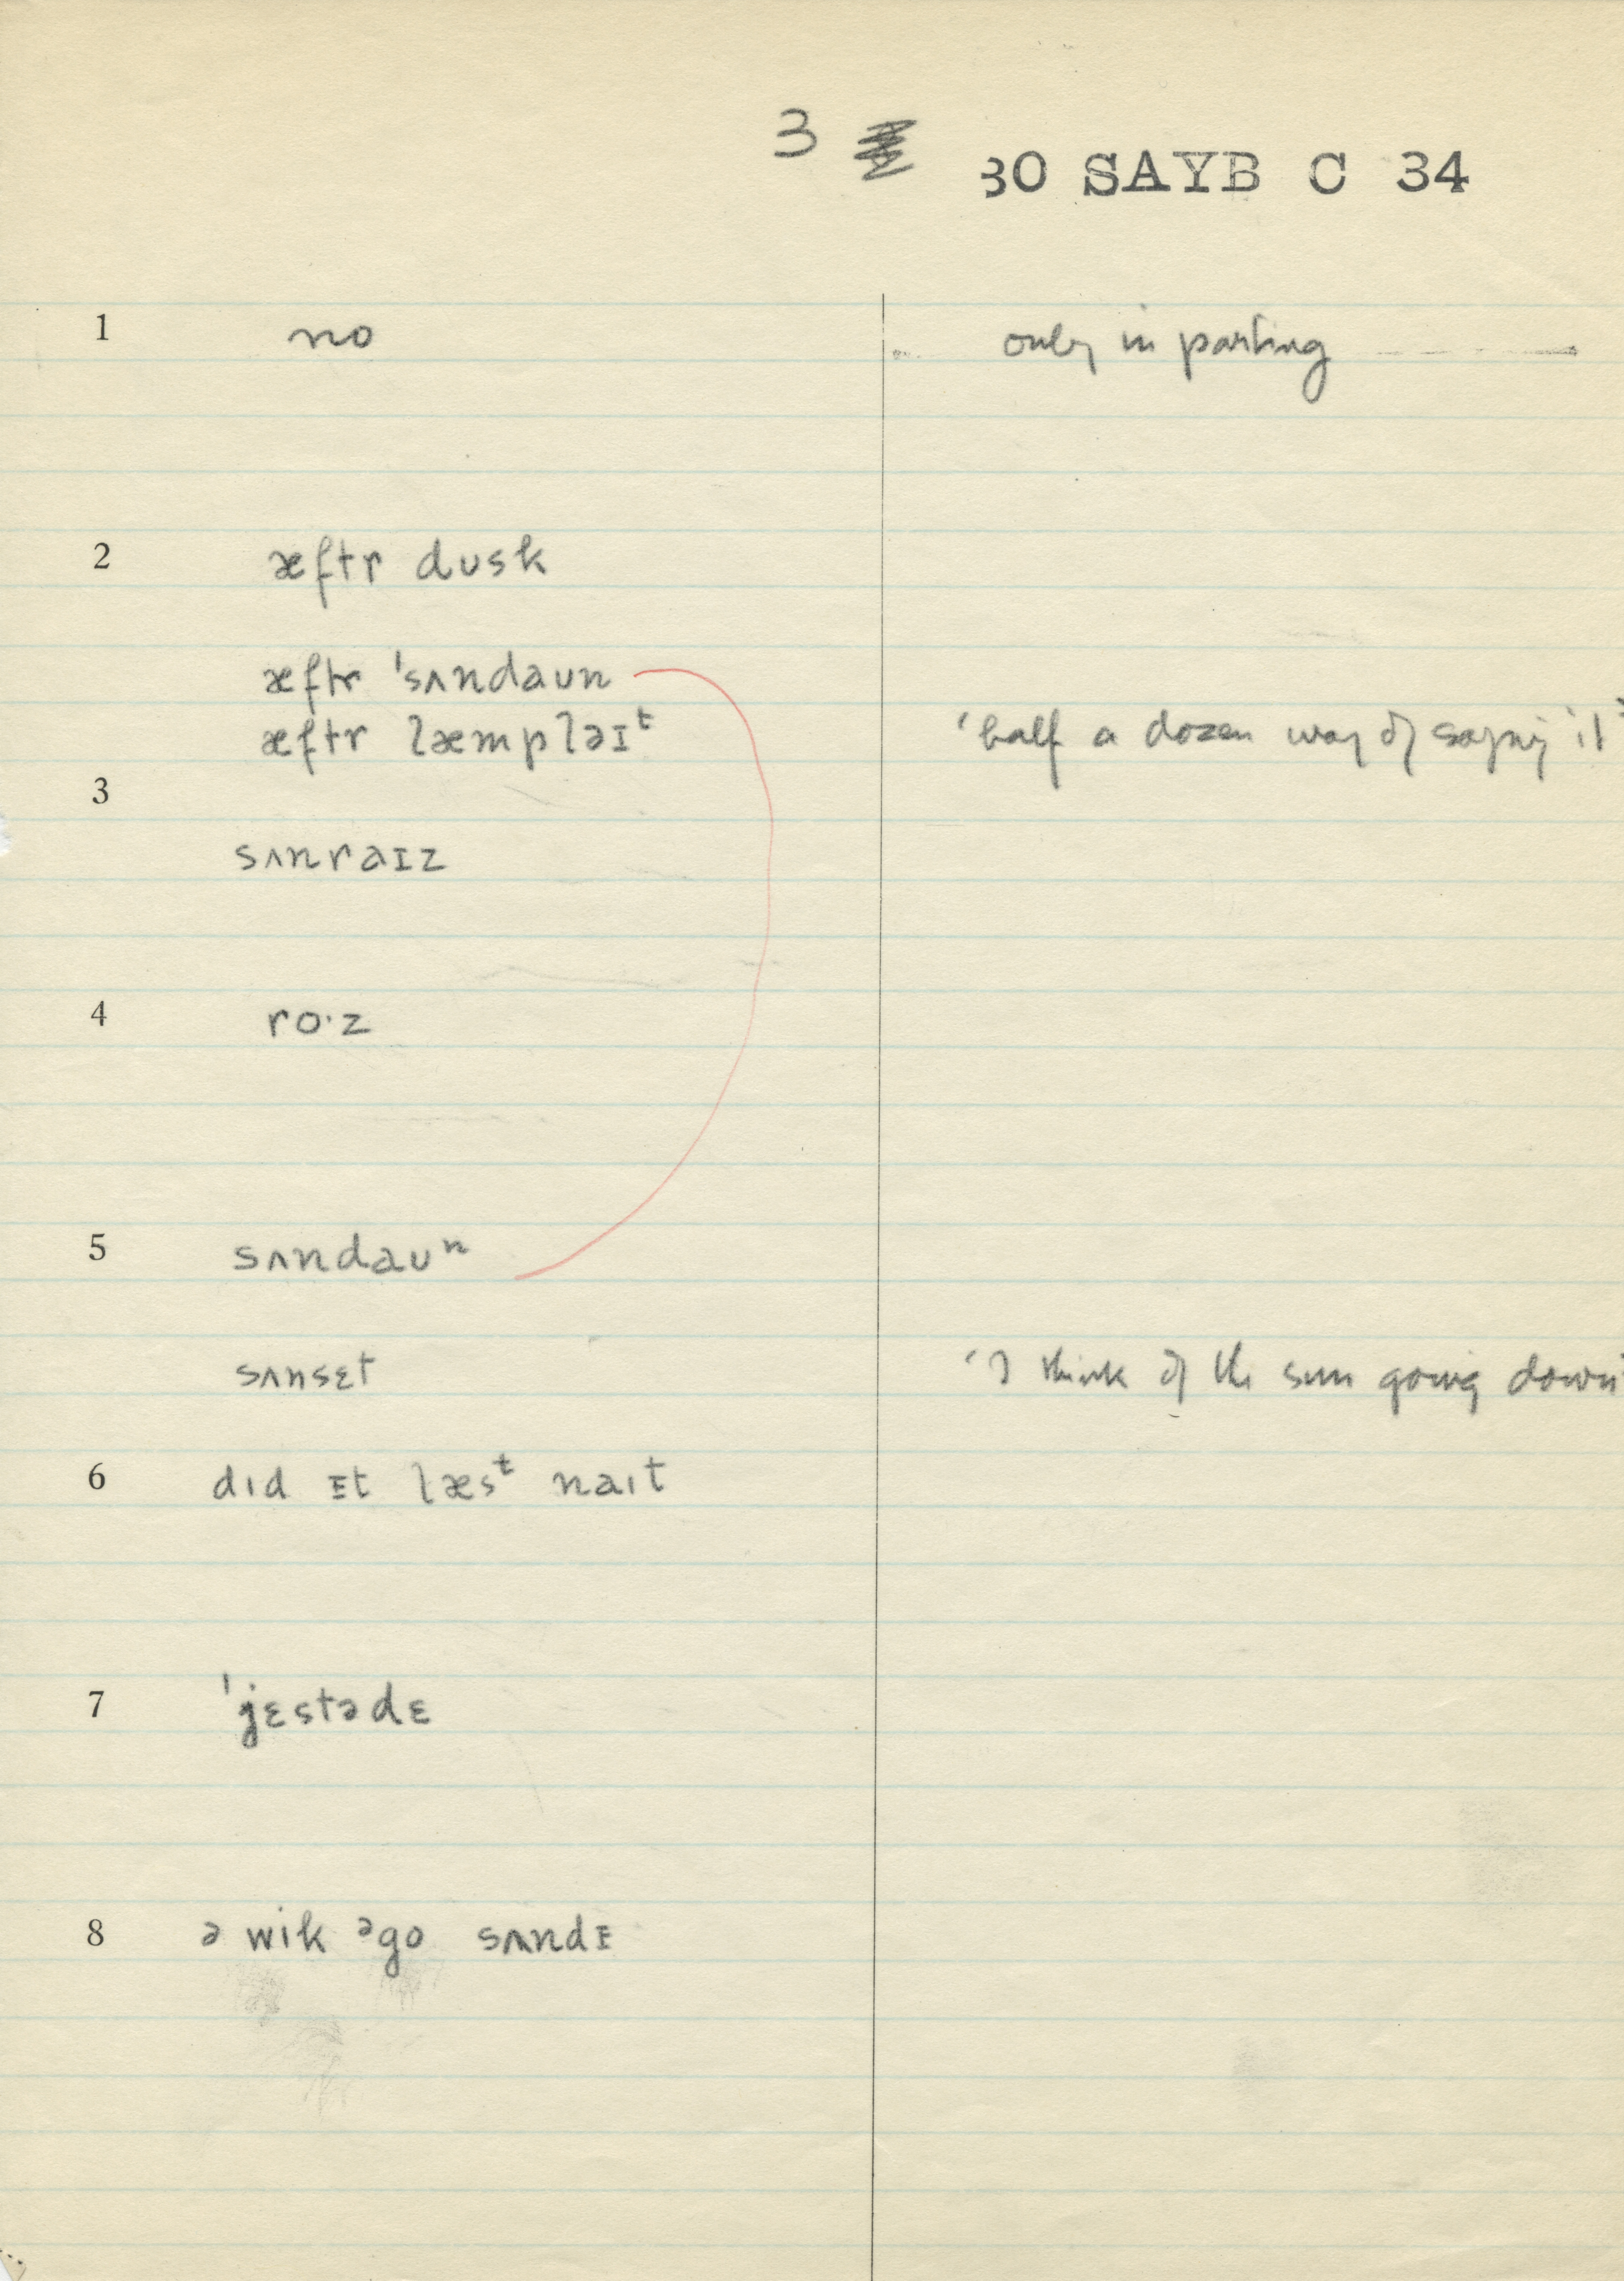 3
30 SAYB C 34
1 no only in parting
2 æftr dusk
æftr ˈsʌndaun
æftr læmplaɪᵗ 'half a dozen way of saying it'
3
sʌnraɪz
4 ro·z
5 sʌndauⁿ
sʌnsɛt 'I think of the sun going down'
6 dɪd ɪt læsᵗ naɪt
7 ˈjɛstədɛ
8 ə wik ᵊgo sʌndɪ